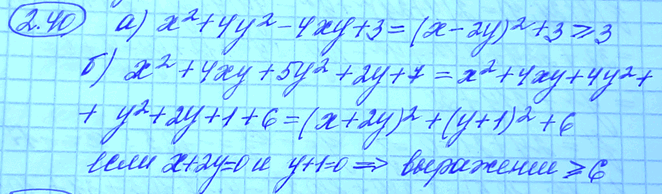 2.40 а) x² + 4y² - 4xy + 3 = (x - 2y)² + 3 ≥ 3
б) x² + 4xy + 5y² + 2y + 7 = x² + 4xy + 4y² +
+ y² + 2y + 1 + 6 = (x + 2y)² + (y + 1)² + 6
если x + 2y = 0 и y + 1 = 0 => выражение ≥ 6